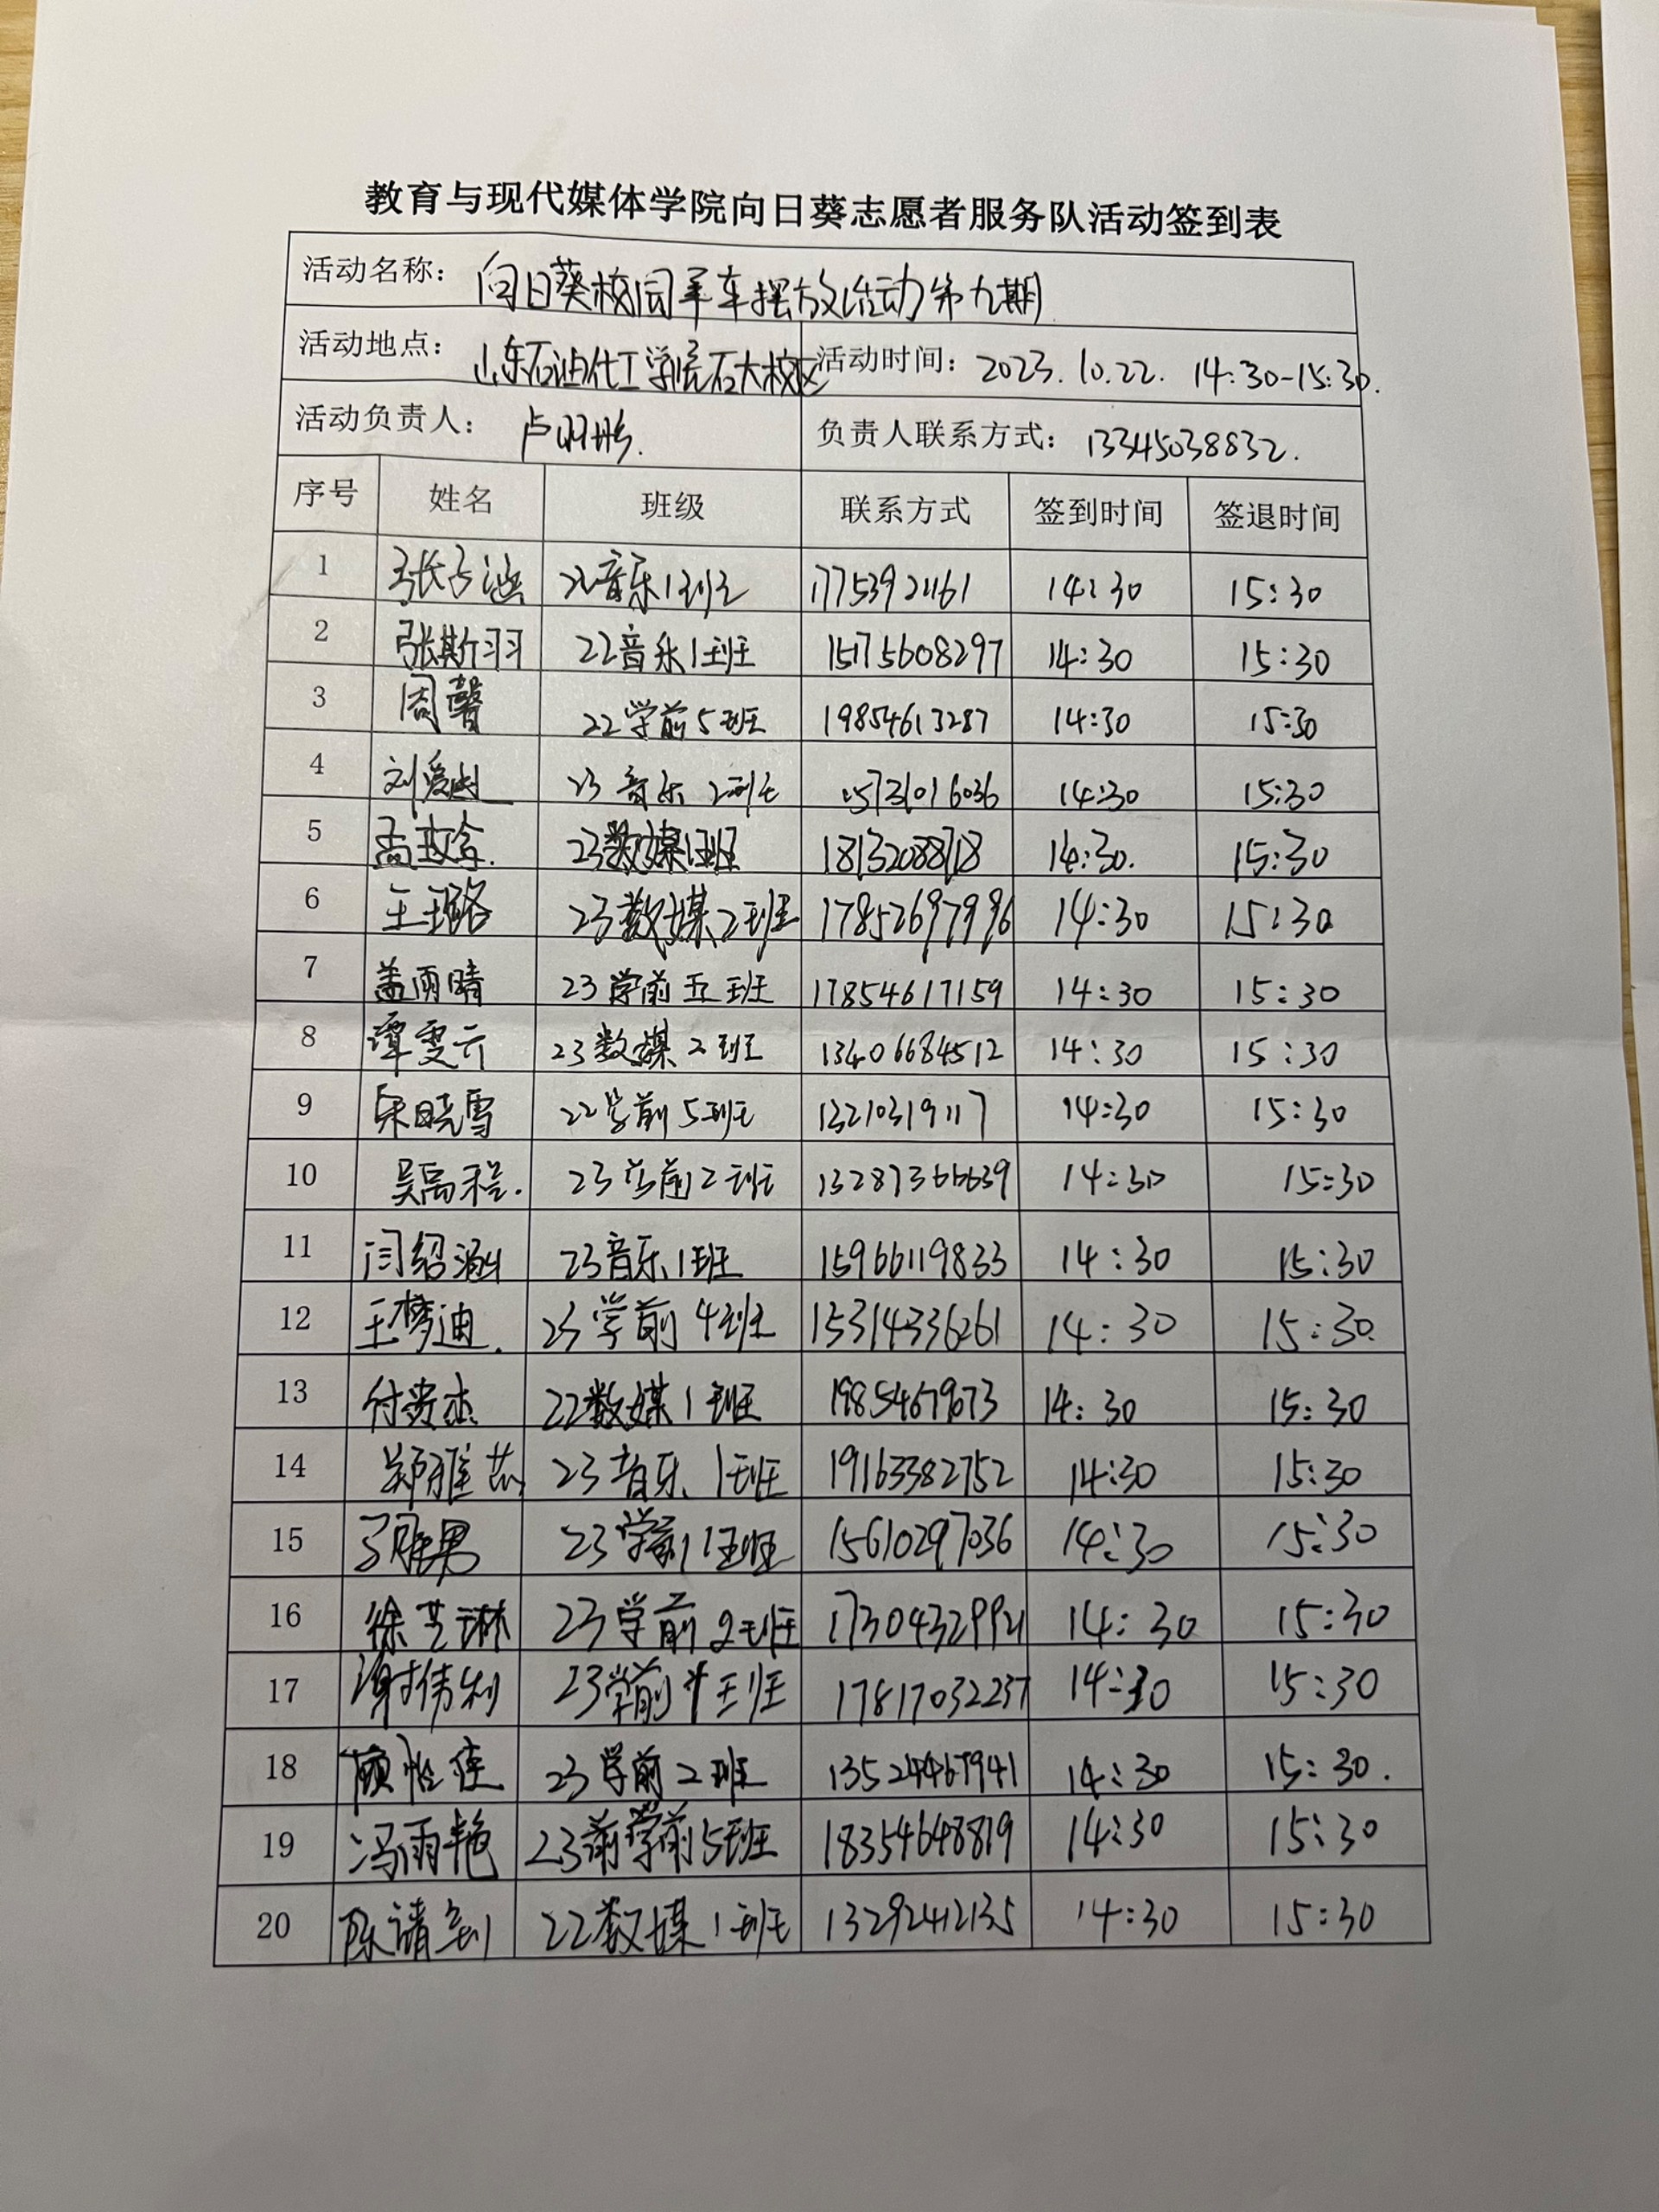 教育与现代媒体学院向日葵志愿者服务队活动签到表
活动名称： 向日葵校园单车摆放活动第九期
活动地点： 山东石油化工学院石大校区 活动时间：2023.10.22. 14:30-15:30.
活动负责人： 卢羽彤. 负责人联系方式：13345038832.
序号 姓名 班级 联系方式 签到时间 签退时间
1 张子涵 22音乐1班 14:30 15:30
2 张斯羽 22音乐1班 15175608297 14:30 15:30
3 周馨 22学前5班 19854613287 14:30 15:30
4 23音乐2班 14:30 15:30
5 23数媒1班 14:30. 15:30
6 王璐 23数媒2班 14:30 15:30
7 盖雨晴 23学前五班 17854617159 14:30 15:30
8 谭雯亓 23数媒2班 13406684512 14:30 15:30
9 宋晓雪 22学前5班 13210319117 14:30 15:30
10 吴禹程. 23学前2班 14:30 15:30
11 闫绍涵 23音乐1班 15966119833 14:30 15:30
12 王梦迪. 23学前4班 15314336261 14:30 15:30.
13 付贵杰 22数媒1班 14:30 15:30
14 郑雅芯 23音乐1班 19163382752 14:30 15:30
15 23学前1班 15610297036 14:30 15:30
16 徐艺琳 23学前2班 17304329921 14:30 15:30
17 谢伟利 23学前 班 17817032237 14:30 15:30
18 顾怡佳 23学前2班 13524467941 14:30 15:30.
19 冯雨艳 23前学前5班 18354648819 14:30 15:30
20 22数媒1班 13292412135 14:30 15:30